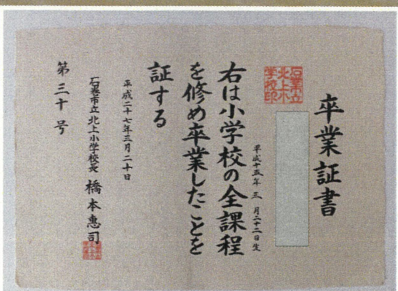 卒業証書
平成十五年三月二十二日生
右は小学校の全課程
を修め卒業したことを
証する
平成二十七年三月二十日
石巻市立北上小学校長 橋本惠司
第三十号